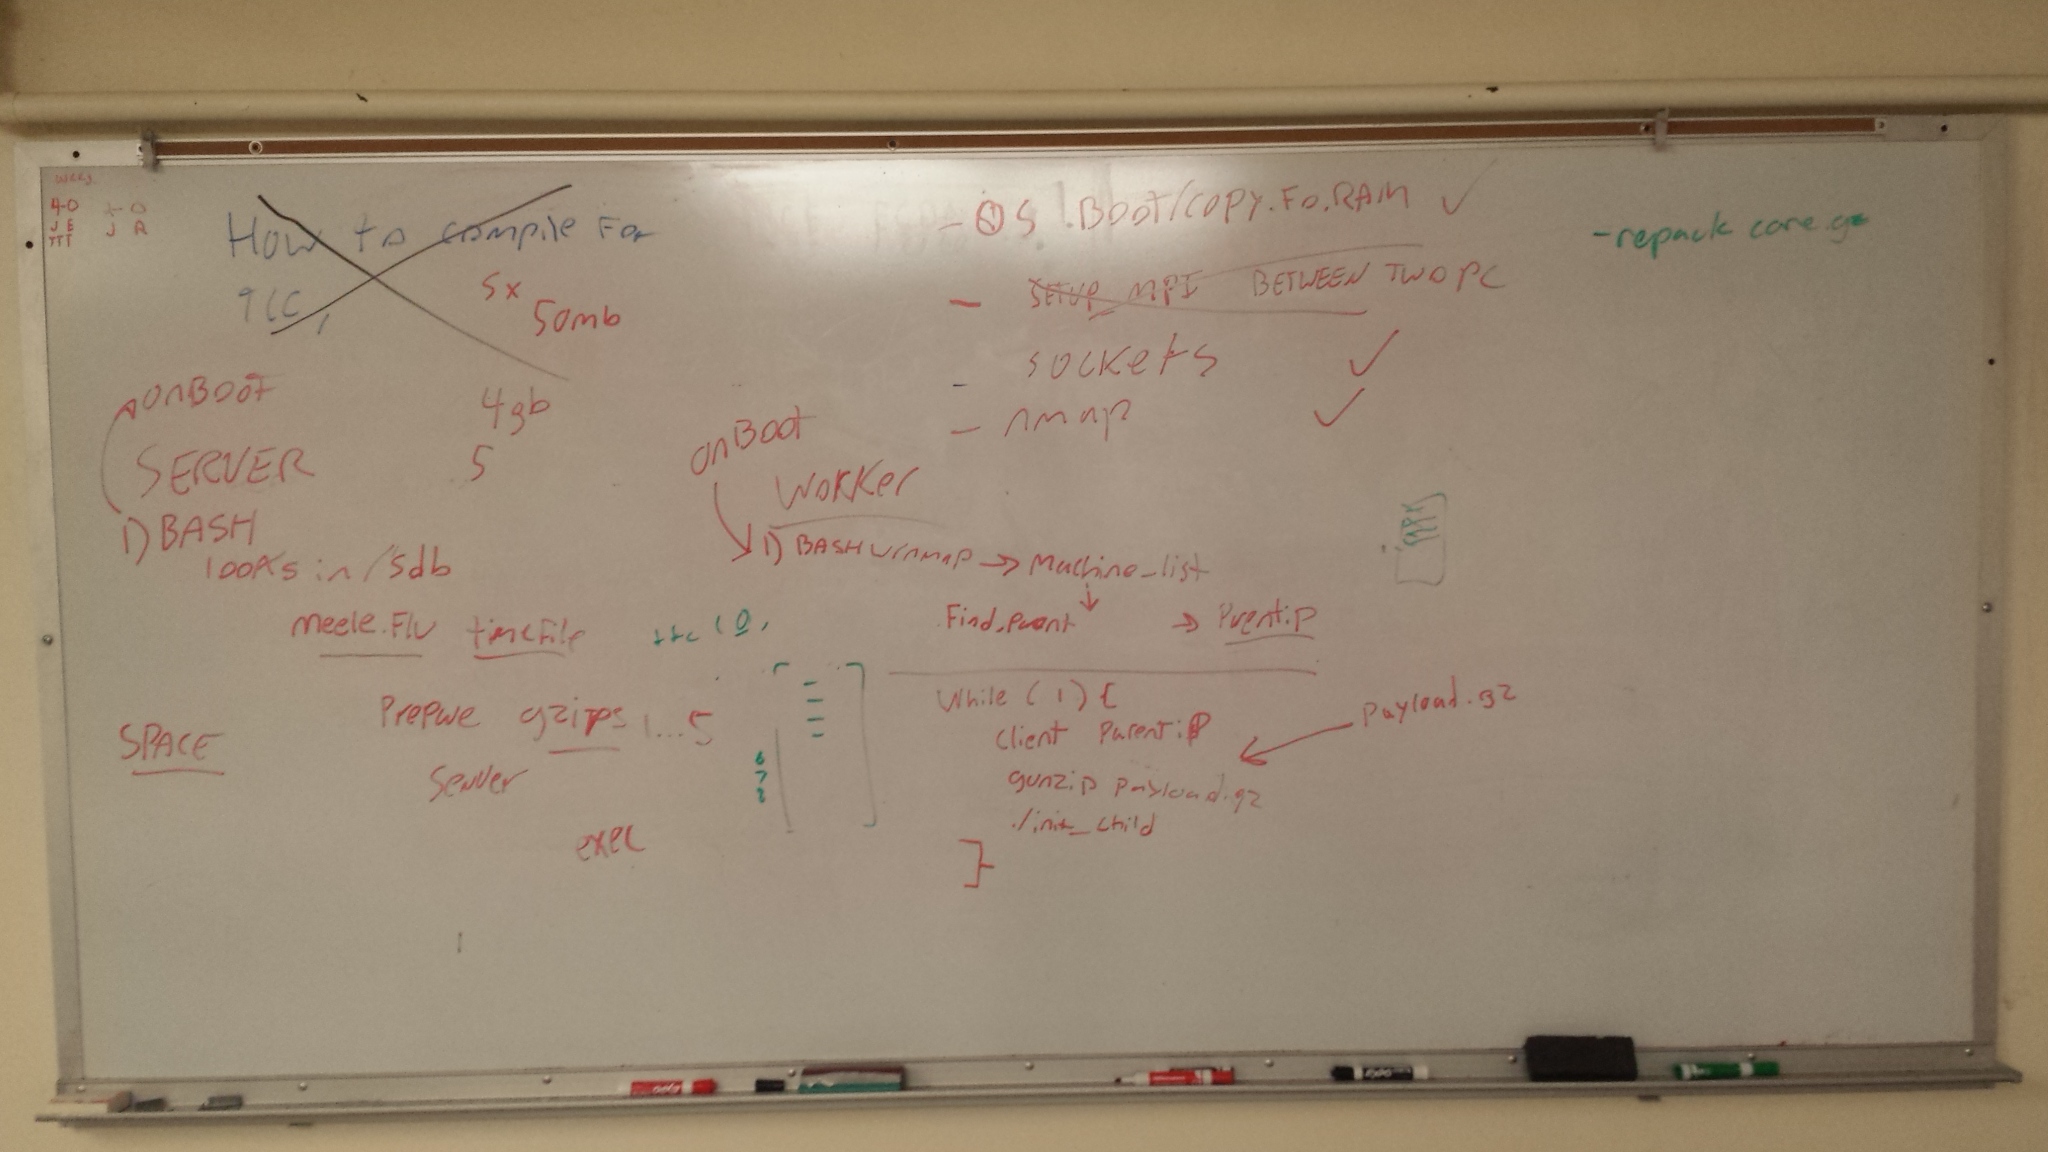 How to compile For
TCC,
5x
50mb
onBoot
4gb
SERVER
5
1) BASH
looks in /sdb
meele.Flv timeFile
ttc (0,
Prepare gzips 1...5
SPACE
Server
exec
6
7
8
onBoot
Worker
1) BASH w/nmap → Machine_list
Find.parent → Parent.ip
While (1) {
client Parent.ip
gunzip payload.gz
./init_child
}
Payload.gz
- OS Boot/copy.To.RAM ✓
- SETUP MPI BETWEEN TWO PC
- sockets ✓
- nmap ✓
- repack core.gz